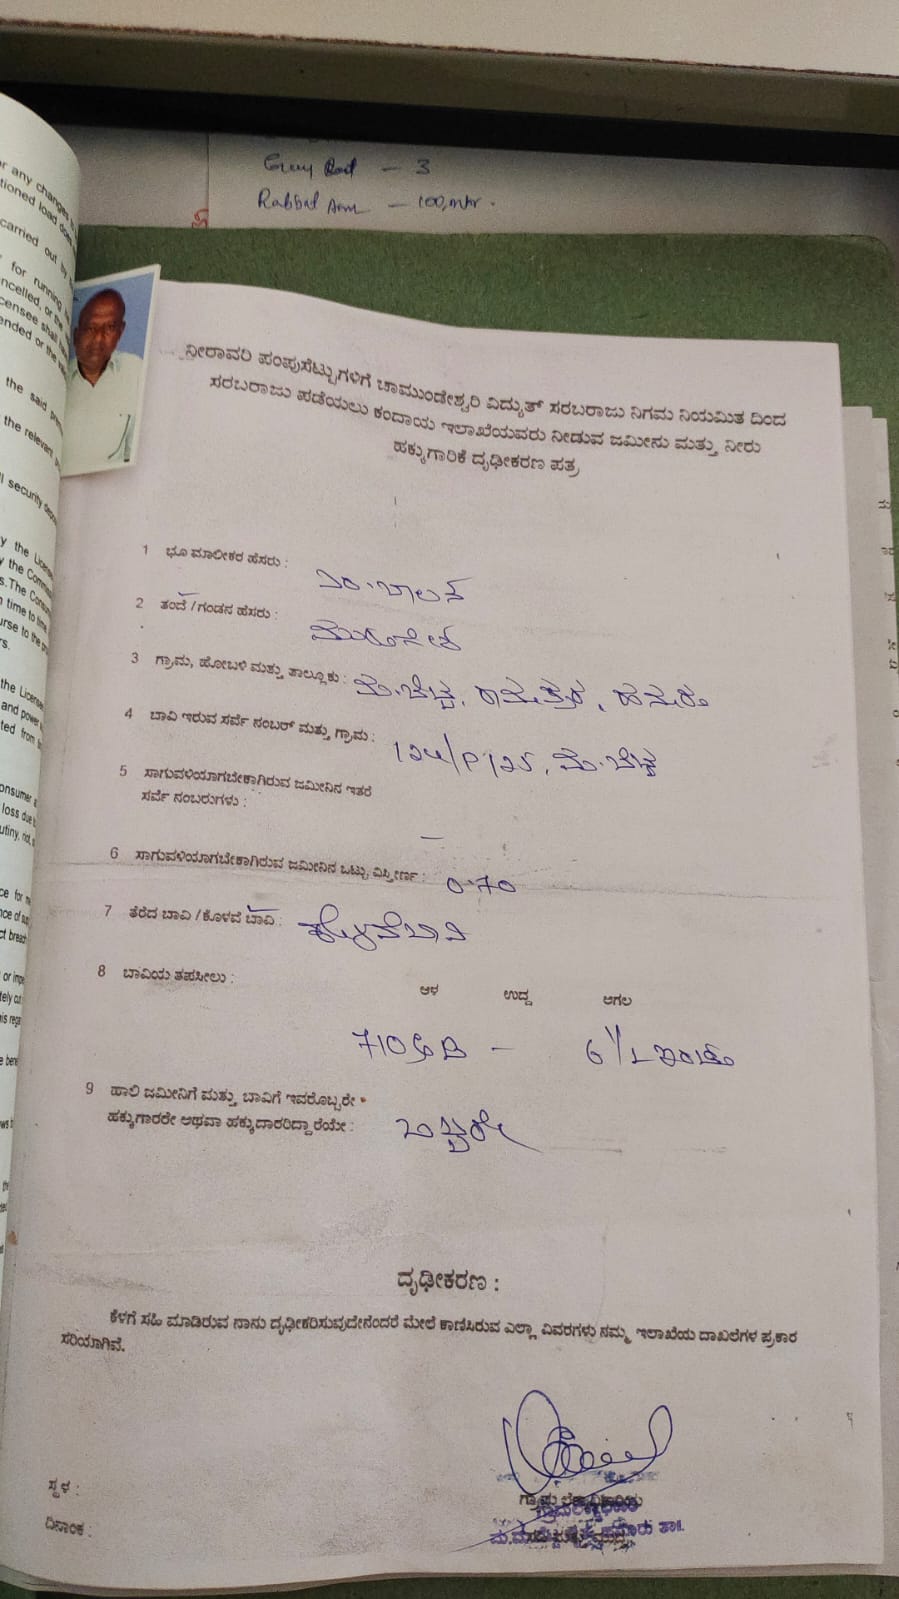 Rabbal Arm - 100, mtr.
or any changes
tioned load
carried out by
for running
ncelled, or the
censee shall
ended or the
the said
the relevant
ll security
y the License
y the
s.The Cons
time to time
urse to the
rs.
the License
and power
ted from
onsumer
loss due
utiny,
ce for
nce of
ct breach
or
tely
ನೀರಾವರಿ ಪಂಪುಸೆಟ್ಟುಗಳಿಗೆ ಚಾಮುಂಡೇಶ್ವರಿ ವಿದ್ಯುತ್ ಸರಬರಾಜು ನಿಗಮ ನಿಯಮಿತ ದಿಂದ
ಸರಬರಾಜು ಪಡೆಯಲು ಕಂದಾಯ ಇಲಾಖೆಯವರು ನೀಡುವ ಜಮೀನು ಮತ್ತು ನೀರು
ಹಕ್ಕುಗಾರಿಕೆ ದೃಢೀಕರಣ ಪತ್ರ
1 ಭೂ ಮಾಲೀಕರ ಹೆಸರು :
2 ತಂದೆ / ಗಂಡನ ಹೆಸರು :
3 ಗ್ರಾಮ, ಹೋಬಳಿ ಮತ್ತು ತಾಲ್ಲೂಕು : ಮ.ಬೆಟ್ಟ, ರಾಮಾಪುರ, ಹನೂರು
4 ಬಾವಿ ಇರುವ ಸರ್ವೆ ನಂಬರ್ ಮತ್ತು ಗ್ರಾಮ : ಮ.ಬೆಟ್ಟ
5 ಸಾಗುವಳಿಯಾಗಬೇಕಾಗಿರುವ ಜಮೀನಿನ ಇತರೆ
ಸರ್ವೆ ನಂಬರುಗಳು : —
6 ಸಾಗುವಳಿಯಾಗಬೇಕಾಗಿರುವ ಜಮೀನಿನ ಒಟ್ಟು ವಿಸ್ತೀರ್ಣ : 0.70
7 ತೆರೆದ ಬಾವಿ / ಕೊಳವೆ ಬಾವಿ : ಕೊಳವೆಬಾವಿ
8 ಬಾವಿಯ ತಪಸೀಲು :
ಆಳ ಉದ್ದ ಅಗಲ
710 ಅಡಿ — 6 1/2 ಇಂಚು
9 ಹಾಲಿ ಜಮೀನಿಗೆ ಮತ್ತು ಬಾವಿಗೆ ಇವರೊಬ್ಬರೇ
ಹಕ್ಕುಗಾರರೇ ಅಥವಾ ಹಕ್ಕುದಾರರಿದ್ದಾರೆಯೇ : ಒಬ್ಬರೇ
ದೃಢೀಕರಣ :
ಕೆಳಗೆ ಸಹಿ ಮಾಡಿರುವ ನಾನು ದೃಢೀಕರಿಸುವುದೇನೆಂದರೆ ಮೇಲೆ ಕಾಣಿಸಿರುವ ಎಲ್ಲಾ ವಿವರಗಳು ನಮ್ಮ ಇಲಾಖೆಯ ದಾಖಲೆಗಳ ಪ್ರಕಾರ
ಸರಿಯಾಗಿವೆ.
ಸ್ಥಳ :
ದಿನಾಂಕ :